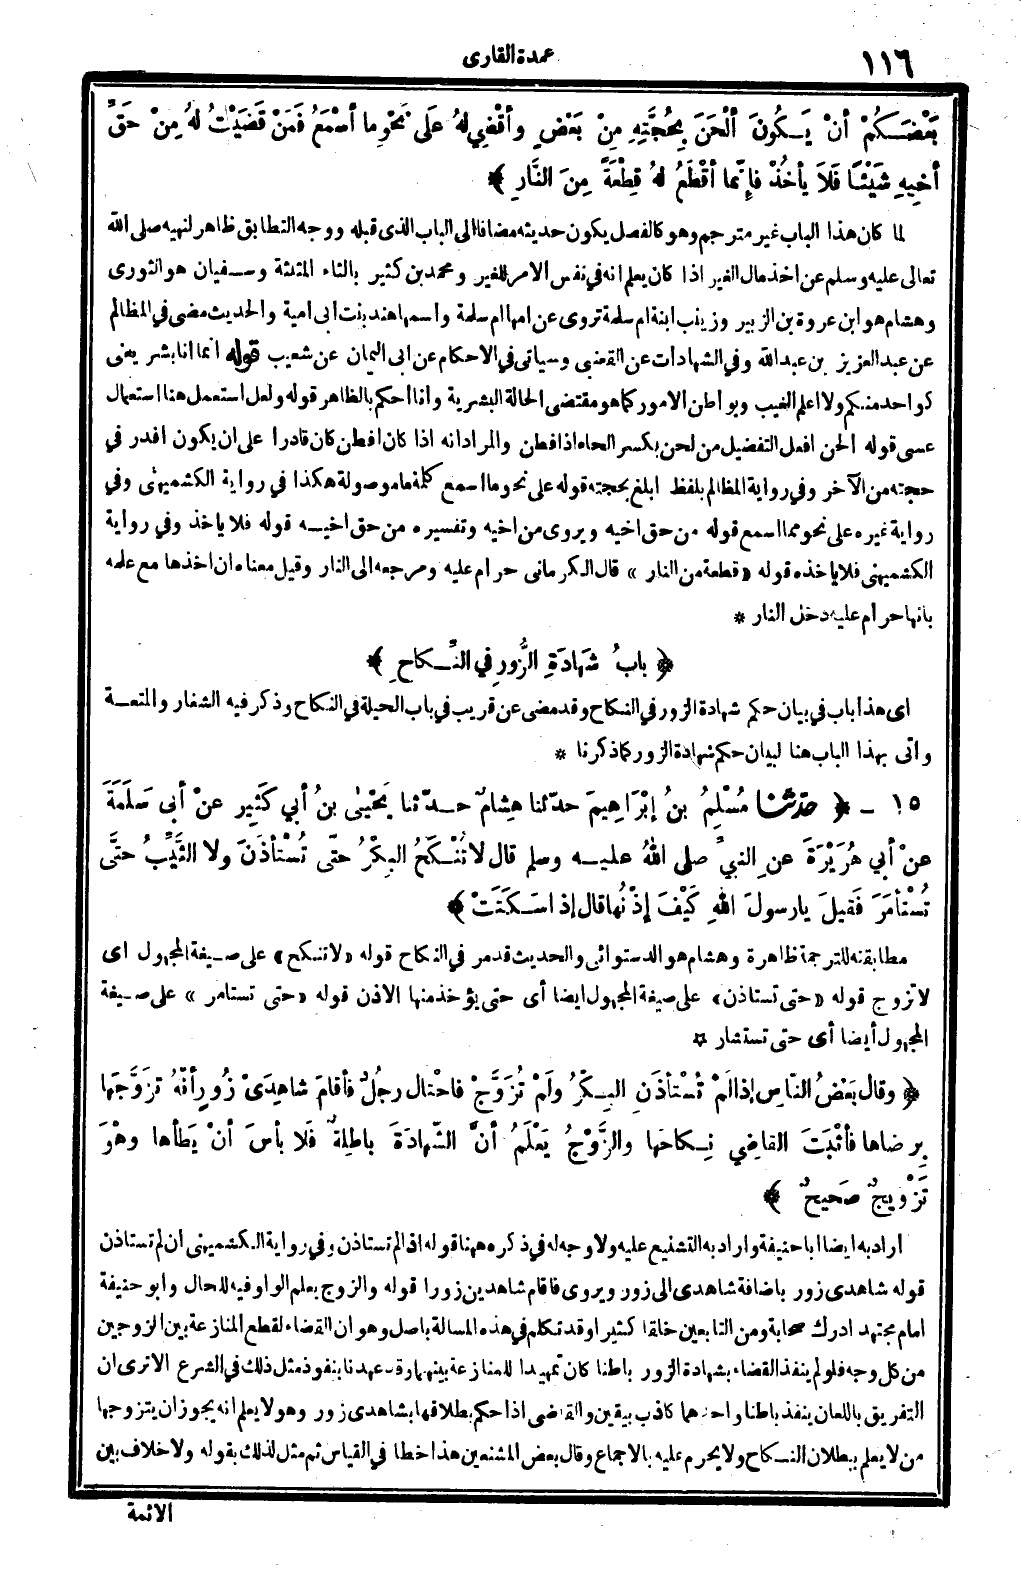 ١١٦
عمدة القارى
بَعْضَكُمْ أنْ يَكُونَ ألْحَنَ بِحُجَّتِهِ مِنْ بَعْضٍ وأقْضِي لهُ عَلَى نَحْوِ ما أسْمَعُ فَمَنْ قَضَيْتُ لهُ مِنْ حَقِّ
أخِيهِ شَيْئًا فَلَا يأخُذْ فإنَّما أقْطَعُ لهُ قِطْعَةً مِنَ النَّارِ ﴾
لما كان هذا الباب غير مترجم وهو كالفصل يكون حديثه مضافا الى الباب الذى قبله ووجه التطابق ظاهر لنهيه صلى الله
تعالى عليه وسلم عن اخذ مال الغير اذا كان يعلم انه فى نفس الامر للغير ومحمد بن كثير بالثاء المثلثة وسفيان هو الثورى
وهشام هو ابن عروة بن الزبير وزينب ابنة ام سلمة تروى عن امها ام سلمة واسمها هند بنت ابى امية والحديث مضى فى المظالم
عن عبد العزيز بن عبد الله وفى الشهادات عن القعنبى وسياتى فى الاحكام عن ابى اليمان عن شعيب قوله انما انا بشر يعنى
كواحد منكم ولا اعلم الغيب وبواطن الامور كما هو مقتضى الحالة البشرية وانا احكم بالظاهر قوله ولعل استعمل هنا استعمال
عسى قوله الحن افعل التفضيل من لحن بكسر الحاء اذا فطن والمراد انه اذا كان افطن كان قادرا على ان يكون اقدر فى
حجته من الآخر وفى رواية المظالم بلفظ ابلغ بحجته قوله على نحو ما اسمع كلمة ما موصولة هكذا فى رواية الكشميهنى وفى
رواية غيره على نحو مما اسمع قوله من حق اخيه ويروى من اخيه وتفسيره من حق اخيه قوله فلا ياخذ وفى رواية
الكشميهنى فلا ياخذه قوله «قطعة من النار» قال الكرمانى حرام عليه ومرجعه الى النار وقيل معناه ان اخذها مع علمه
بانها حرام عليه دخل النار *
﴿ بابُ شَهَادَةِ الزُّورِ فِي النِّكَاحِ ﴾
اى هذا باب فى بيان حكم شهادة الزور فى النكاح وقد مضى عن قريب فى باب الحيلة فى النكاح وذكر فيه الشغار والمتعة
واتى بهذا الباب هنا لبيان حكم شهادة الزور كما ذكرنا *
١٥ - ﴿ حَدَّثَنَا مُسْلِمُ بنُ إبْرَاهِيمَ حدّثنا هِشامٌ حدّثنا يَحْيَىٰ بنُ أبي كَثِيرٍ عنْ أبي سَلَمَةَ
عنْ أبي هُرَيْرَةَ عنِ النبيِّ صلى اللهُ عليه وسلم قال لا تُنْكَحُ البِكْرُ حتّى تُسْتأذَنَ ولا الثَّيِّبُ حتَّى
تُسْتأمَرَ فَقيلَ يارسولَ اللهِ كَيْفَ إذْنُها قال إذا سَكَتَتْ ﴾
مطابقته للترجمة ظاهرة وهشام هو الدستوائى والحديث قد مر فى النكاح قوله «لا تنكح» على صيغة المجهول اى
لا تزوج قوله «حتى تستاذن» على صيغة المجهول ايضا أى حتى يؤخذ منها الاذن قوله «حتى تستامر» على صيغة
المجهول أيضا أى حتى تستشار *
﴿ وقال بَعْضُ النّاسِ إذا لَمْ تُسْتأذَنِ البِكْرُ ولَمْ تُزَوَّجْ فاحْتال رجُلٌ فأقامَ شاهِدَىْ زُورٍ أنَّهُ تَزَوَّجَها
بِرِضاها فأثْبَتَ القاضِي نِكاحَها والزَّوْجُ يَعْلَمُ أنَّ الشَّهادَةَ باطِلةٌ فَلا بأسَ أنْ يَطأها وهْوَ
تَزْوِيجٌ صَحِيحٌ ﴾
اراد به ايضا ابا حنيفة واراد به التشنيع عليه ولا وجه له فى ذكره ههنا قوله اذا لم تستاذن وفى رواية الكشميهنى ان لم تستاذن
قوله شاهدى زور باضافة شاهدى الى زور ويروى فاقام شاهدين زورا قوله والزوج يعلم الواو فيه للحال وابو حنيفة
امام مجتهد ادرك صحابة ومن التابعين خلقا كثيرا وقد تكلم فى هذه المسالة باصل وهو ان القضاء لقطع المنازعة بين الزوجين
من كل وجه فلو لم ينفذ القضاء بشهادة الزور باطنا كان تمهيدا للمنازعة بينهما وقد عهدنا بنفوذ مثل ذلك فى الشرع الا ترى ان
التفريق باللعان ينفذ باطنا واحدهما كاذب بيقين والقاضى اذا حكم بطلاقها بشاهدى زور وهو لا يعلم انه يجوز ان يتزوجها
من لا يعلم ببطلان النكاح ولا يحرم عليه بالاجماع وقال بعض المشنعين هذا خطا فى القياس ثم مثل لذلك بقوله ولا خلاف بين
الائمة